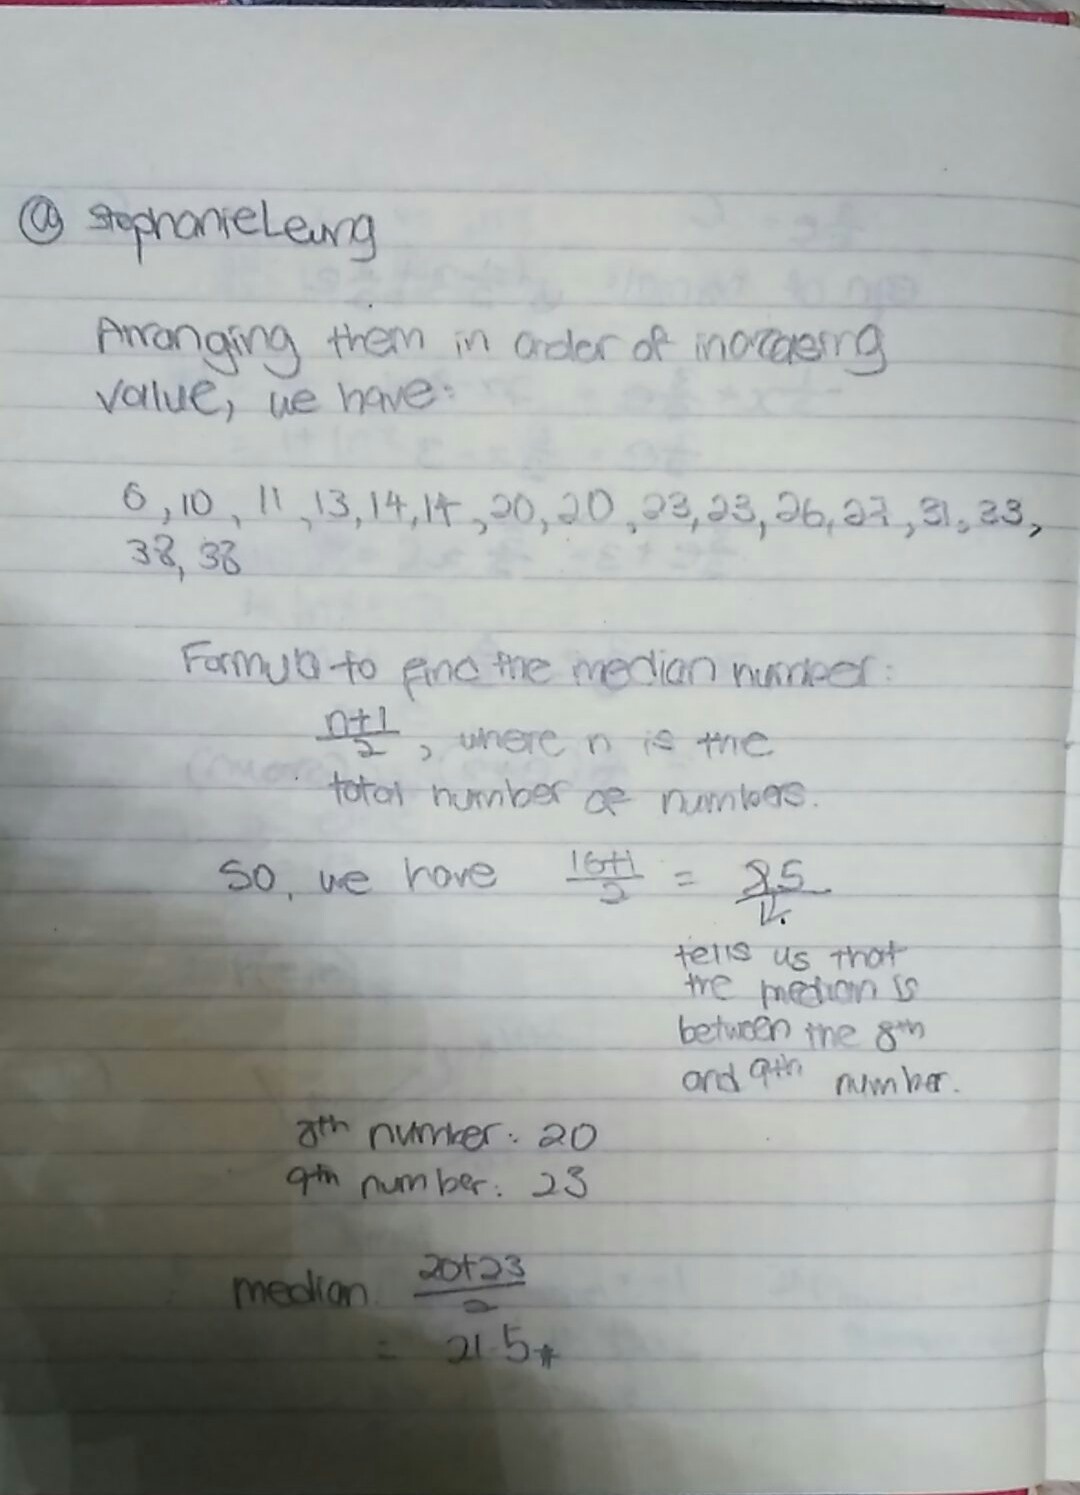 @ StephanieLeung
Arranging them in order of increasing
value, we have:
6, 10, 11, 13, 14, 14, 20, 20, 23, 23, 26, 27, 31, 33,
38, 38
Formula to find the median number:
n+1/2, where n is the
total number of numbers.
So, we have 16+1/2 = 8.5
tells us that
the median is
between the 8th
and 9th number.
8th number: 20
9th number: 23
median 20+23/2
= 21.5#